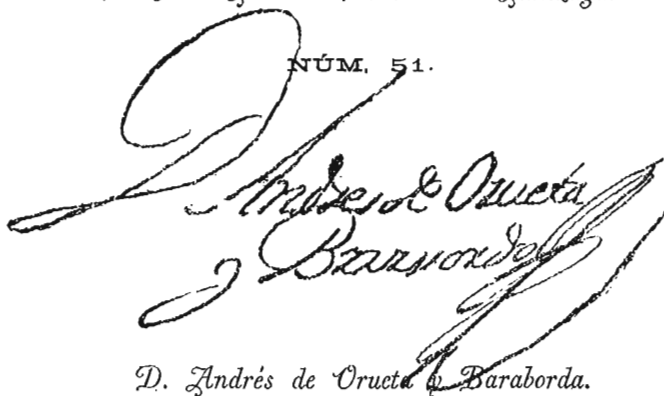 NÚM. 51.
D Andres de Orueta
y
D. Andrés de Orueta y Baraborda.